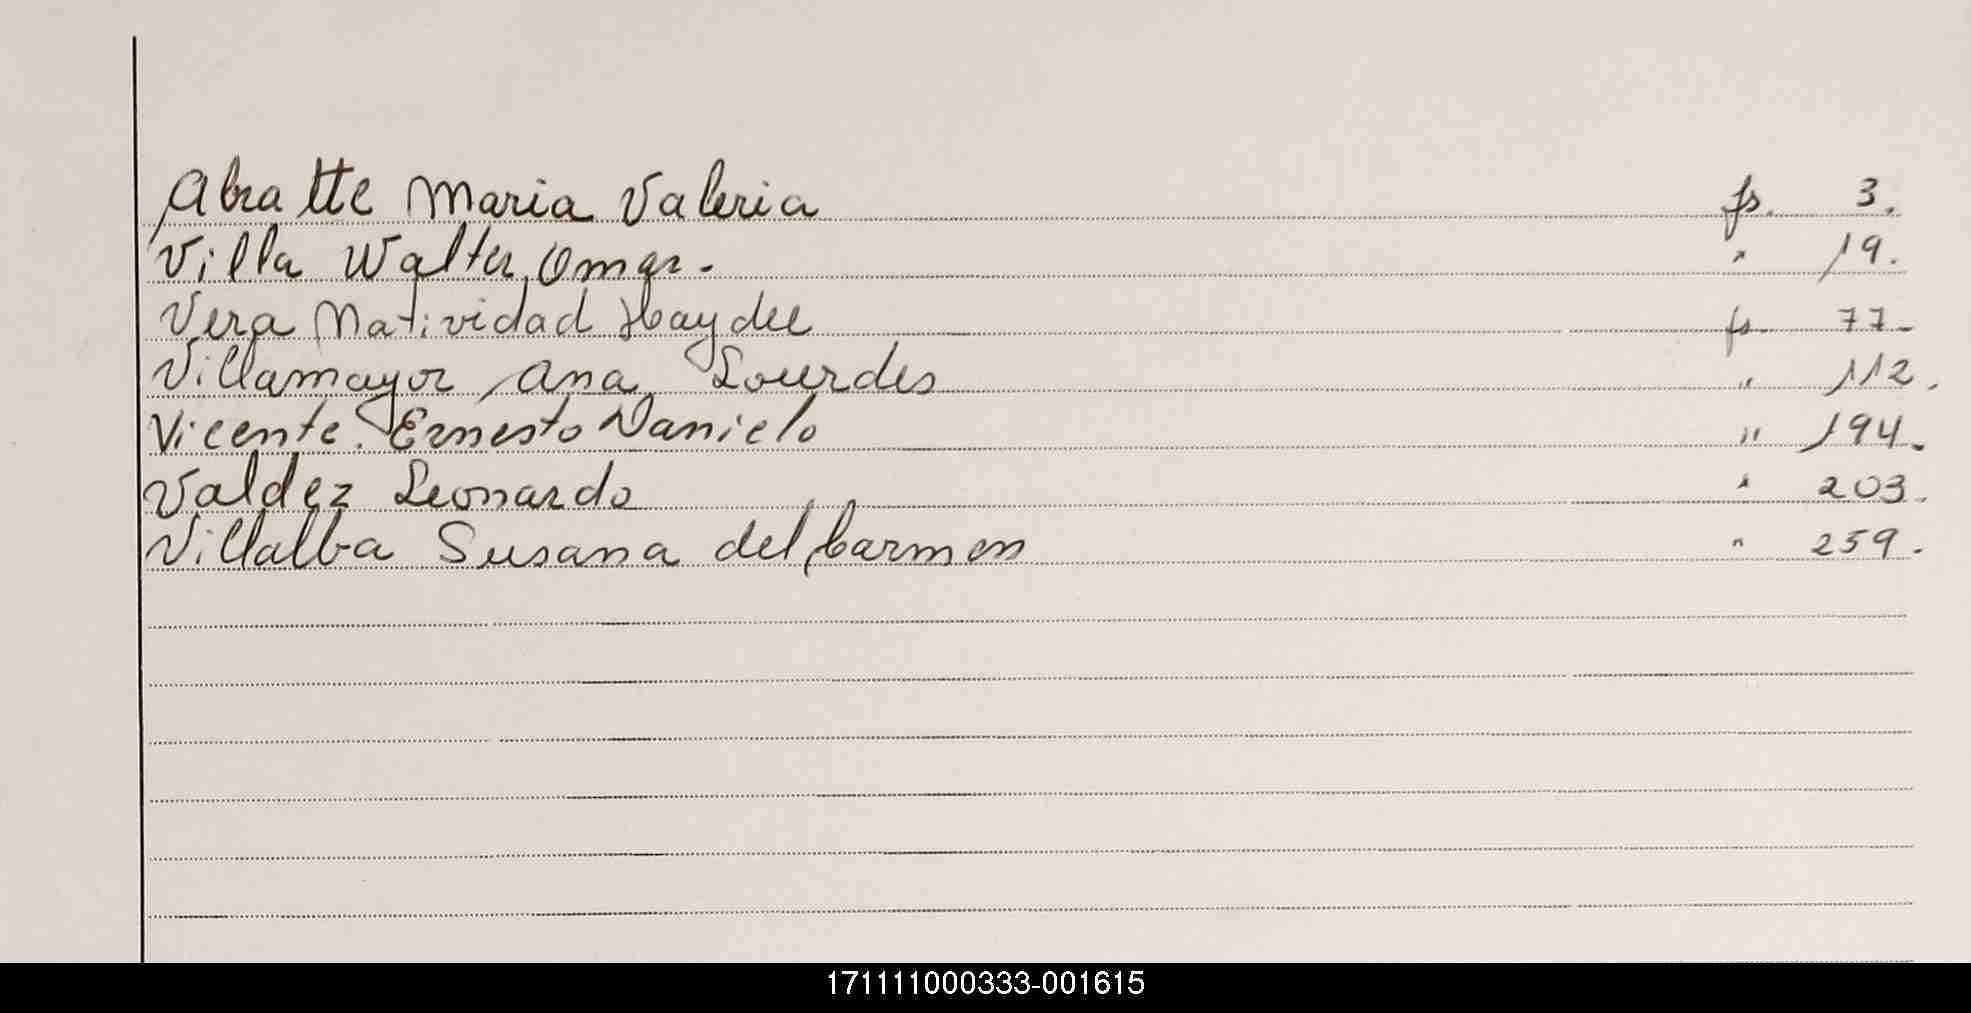 Abratte Maria Valeria fs. 3.
Villa Walter Omar. " 19.
Vera Natividad Haydee fs. 77-
Villamayor Ana Lourdes " 112.
Vicente Ernesto Danielo " 194.
Valdez Leonardo " 203.
Villalba Susana del Carmen " 259.
171111000333-001615